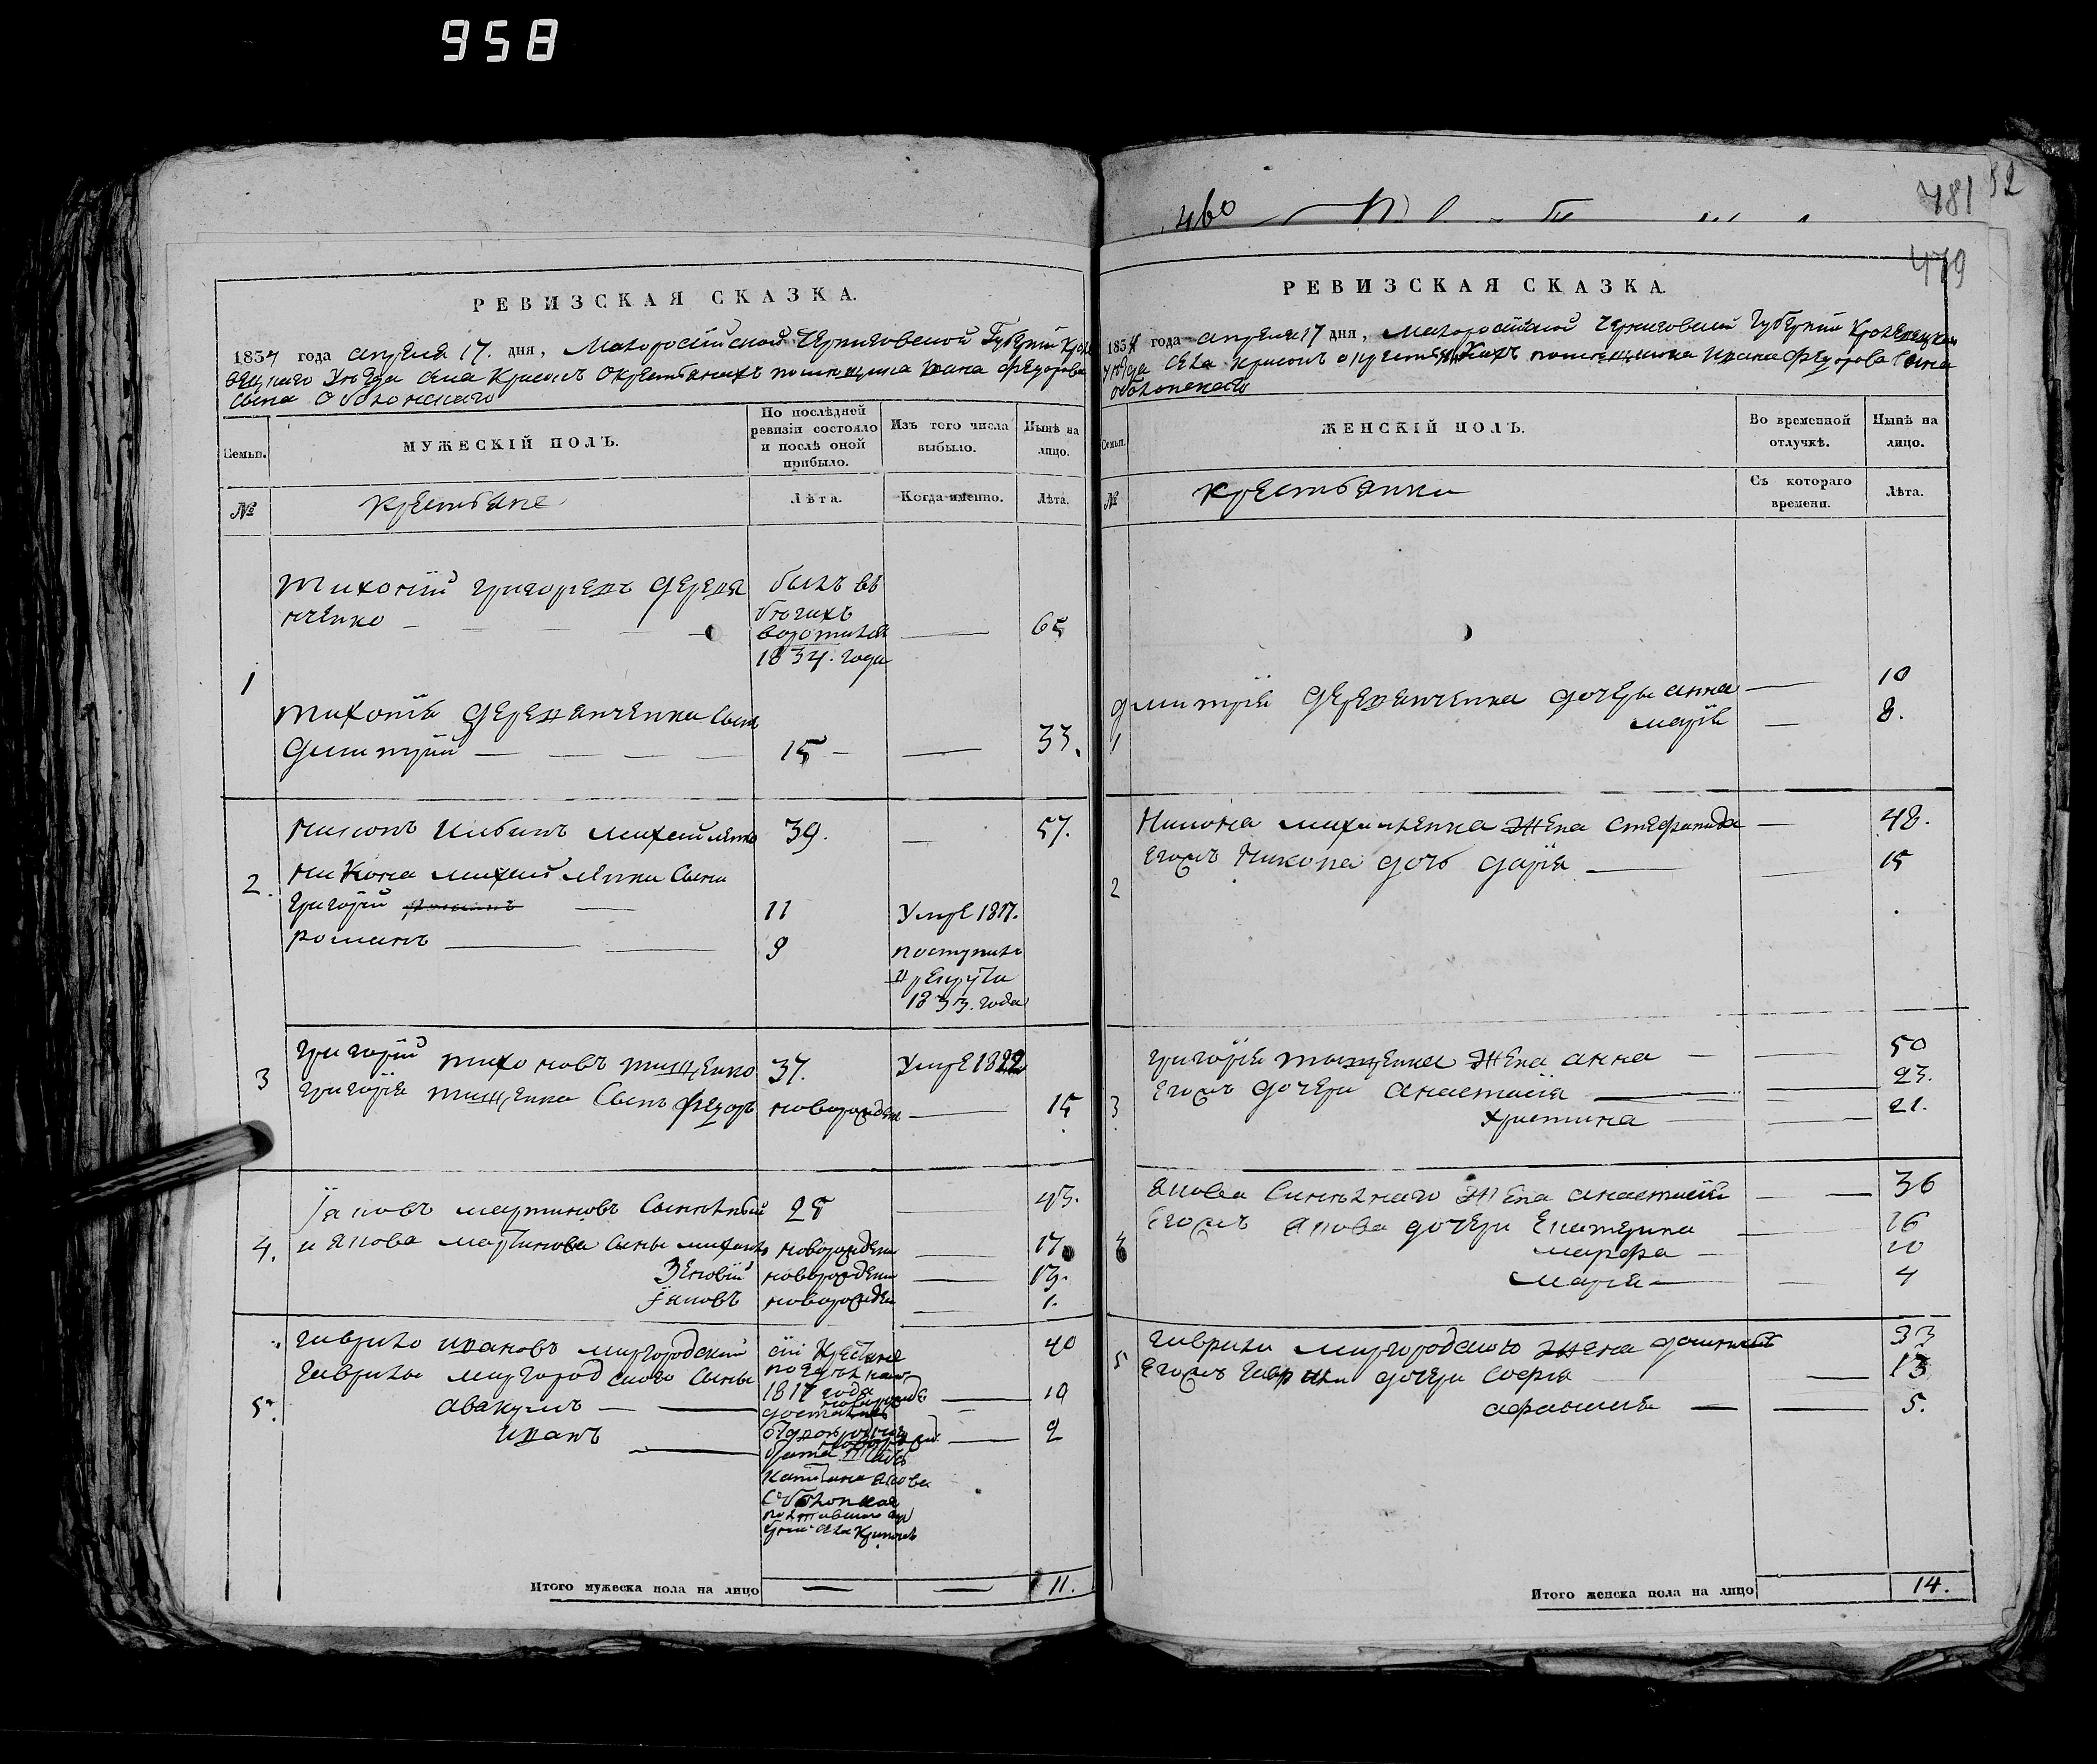 958
481 52
460
479
РЕВИЗСКАЯ СКАЗКА.
1834 года апреля 17. дня, Малоросійской Черниговской Губерніи Кроле
вецкаго Уезда села окрестьянахъ помещика Ивана Федорова
сына Оболонскаго
Семьи.
МУЖЕСКІЙ ПОЛЪ.
По послѣдней ревизіи состояло и послѣ оной прибыло.
Изъ того числа выбыло.
Нынѣ на лицо.
№
крестьяне
Лѣта.
Когда именно.
Лѣта.
1
Тихоній григоревъ Деревя
нченко
былъ въ
бегахъ
воротился
1834. года
65
Тихонія Деревянченка сынъ
Димитрій 15 33.
2.
Никонъ Михайленко 39. 57.
Никона Михайленка сыны
Григорій 11 Умре 1817.
романъ 9 поступилъ
в рекруты
1833. года
3
григорій тихоновъ тищенко 37. Умре 1822
григорія тищенка сынъ федоръ новорожден 15
4.
Іаковъ мартиновъ 25 43.
и Якова мартинова сыны михаилъ новорожден 17
Зеновій новорожден 13.
Іаковъ новорожден 1.
5.
гаврило ивановъ миргородскій 40
Гаврилы миргородского сыны
авакумъ 19
иванъ 2
сіи
1817 года
брата
Оболонская
Итого мужеска пола на лицо 11.
РЕВИЗСКАЯ СКАЗКА.
1834 года апреля 17 дня, Малоросійской Черниговской Губерніи Кролевецкаго
уезда села окрестьянахъ помещика Ивана Федорова сына
оболонскаго
Семьи.
ЖЕНСКІЙ ПОЛЪ.
Во временной отлучкѣ.
Нынѣ на лицо.
№
крестьянки
Съ котораго времени.
Лѣта.
1
димитрія Деревянченка дочеры анна 10
марія 8.
2
Никона михайленка жена стефанида 48.
Егожъ Никона дочь дарія 15
3
григорія тищенка жена анна 50
Егожъ дочери анастасія 23.
христина 21.
4
Якова жена анастасія 36
Егожъ Якова дочери Екатерина 16
марфа 10
марія 4
5
гаврилы миргородского жена 33
Егожъ Гаврилы дочери софія 13
афанасія 5.
Итого женска пола на лицо 14.